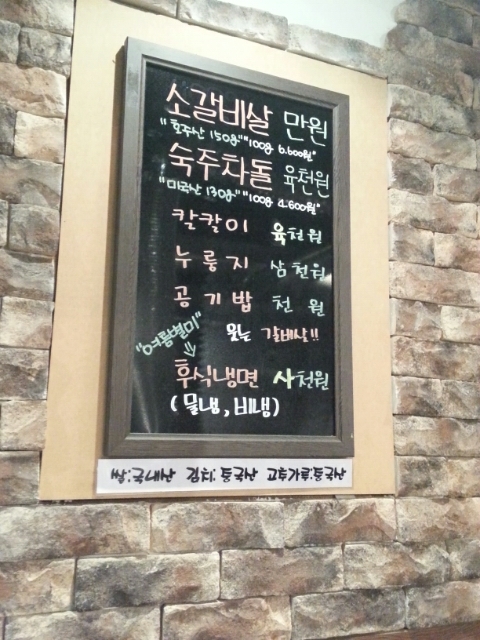 소갈비살 만원
"호주산 150g" "100g 6.600원"
숙주차돌 육천원
"미국산 130g" "100g 4.600원"
칼칼이 육천원
누룽지 삼천원
공기밥 천원
웃는 갈비살!!
"여름별미"
후식냉면 사천원
(물냉, 비냉)
쌀:국내산 김치:중국산 고추가루:중국산